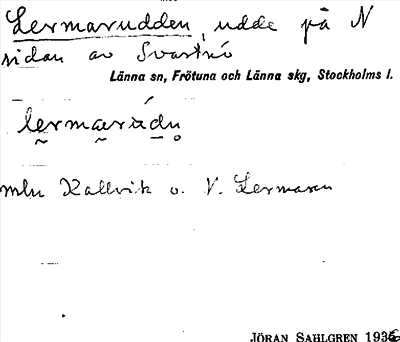 Lermarudden, udde på N
sidan av Svartnö
Länna sn, Frötuna och Länna skg, Stockholms l.
lermarudn
mln Kallvik o. V. Lermaren
JÖRAN SAHLGREN 1936